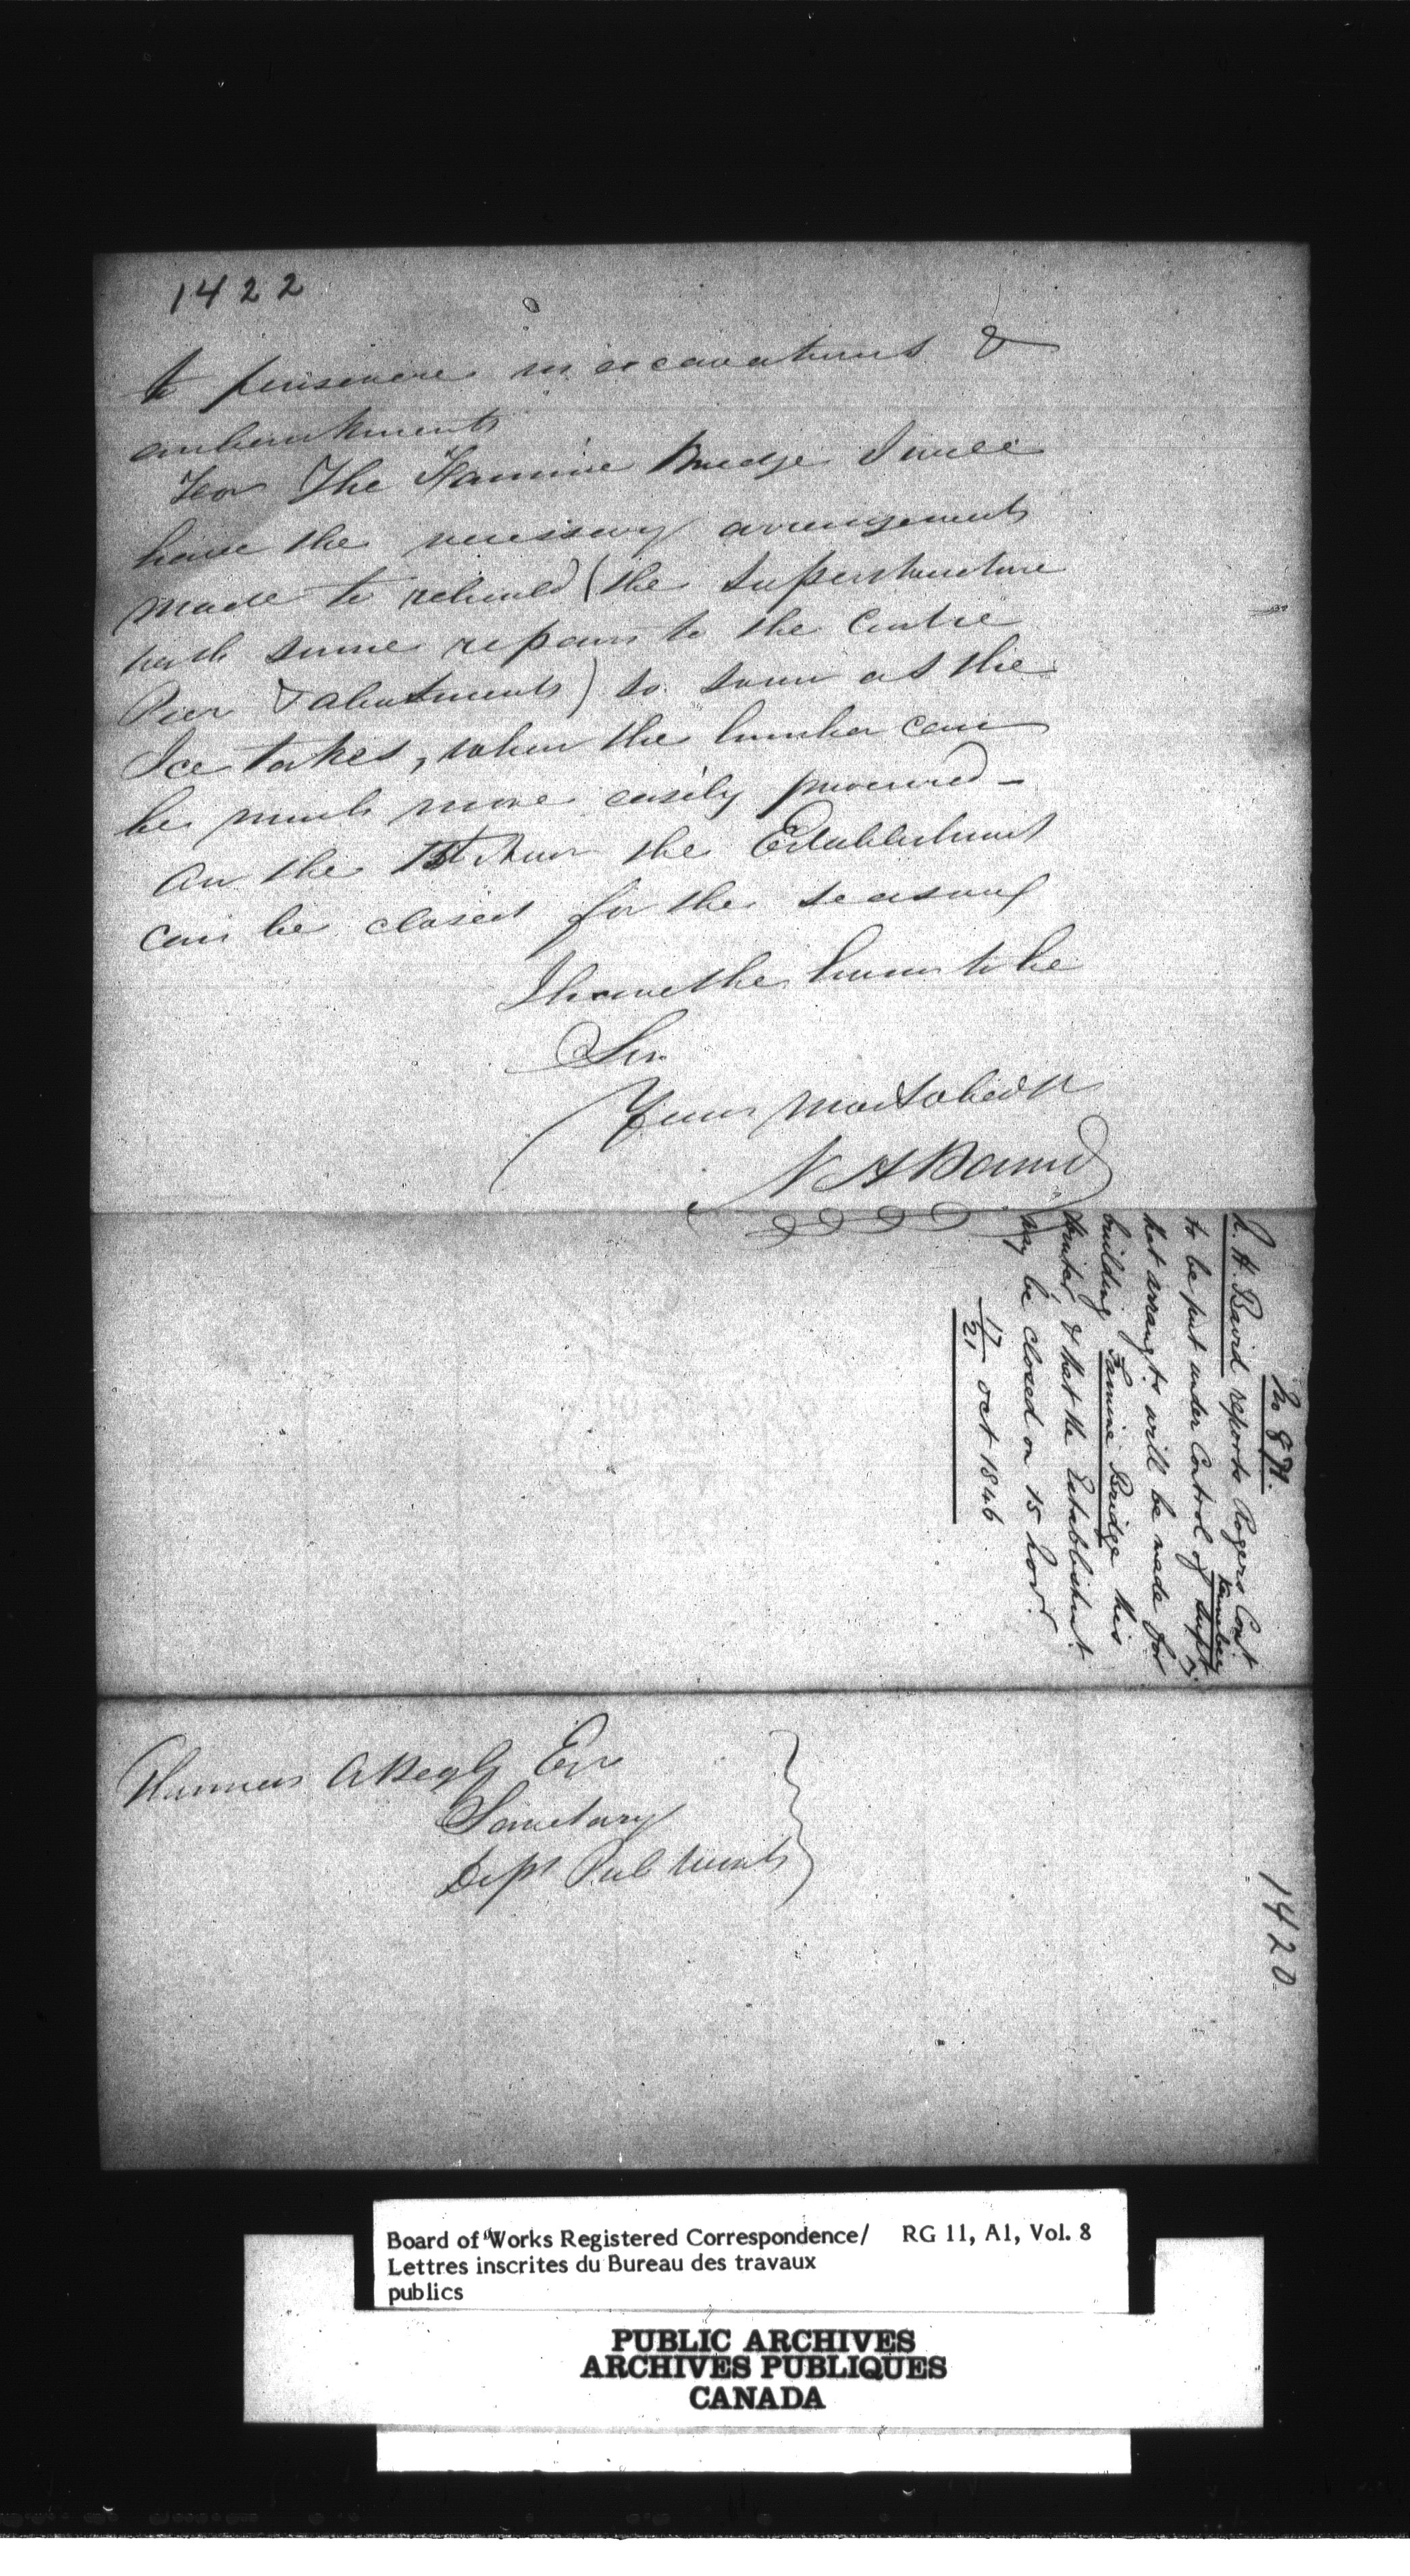 1422
to persevere in excavations &
embankments
For The Famine Bridge I will
have the necessary arrangements
made to rebuild (the Superstructure
with some repairs to the Centre
Pier & abutments) so soon as the
Ice takes, when the lumber can
be much more easily procured –
On the 15t Nov the Establishment
can be closed for the season
I have the honor to be
Sir
Your most obedt
N H Baird
No 871.
N. H. Baird reports Rogers Cont
Kennebec
to be put under Control of Supt
that arrangts will be made for
building Famine Bridge this
Winter, & that the Establishmt
may be closed on 15 Novr
17/21 Oct 1846
Thomas A Begly Esqr
Secretary
Dept Pub Works
1420
Board of Works Registered Correspondence/ RG 11, A1, Vol. 8
Lettres inscrites du Bureau des travaux
publics
PUBLIC ARCHIVES
ARCHIVES PUBLIQUES
CANADA